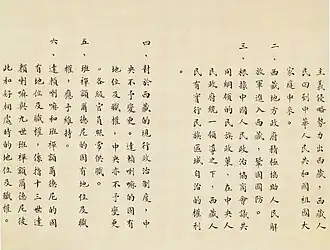 主義侵略勢力出西藏，西藏人
民回到中華人民共和國祖國大
家庭中來。
二、西藏地方政府積極協助人民解
放軍進入西藏，鞏固國防。
三、根據中國人民政治協商會議共
同綱領的民族政策，在中央人
民政府統一領導之下，西藏人
民有實行民族區域自治的權利
。
四、對於西藏的現行政治制度，中
央不予變更。達賴喇嘛的固有
地位及職權，中央亦不予變更
。各級官員照常供職。
五、班禪額爾德尼的固有地位及職
權，應予維持。
六、達賴喇嘛和班禪額爾德尼的固
有地位及職權，係指十三世達
賴喇嘛與九世班禪額爾德尼彼
此和好相處時的地位及職權。